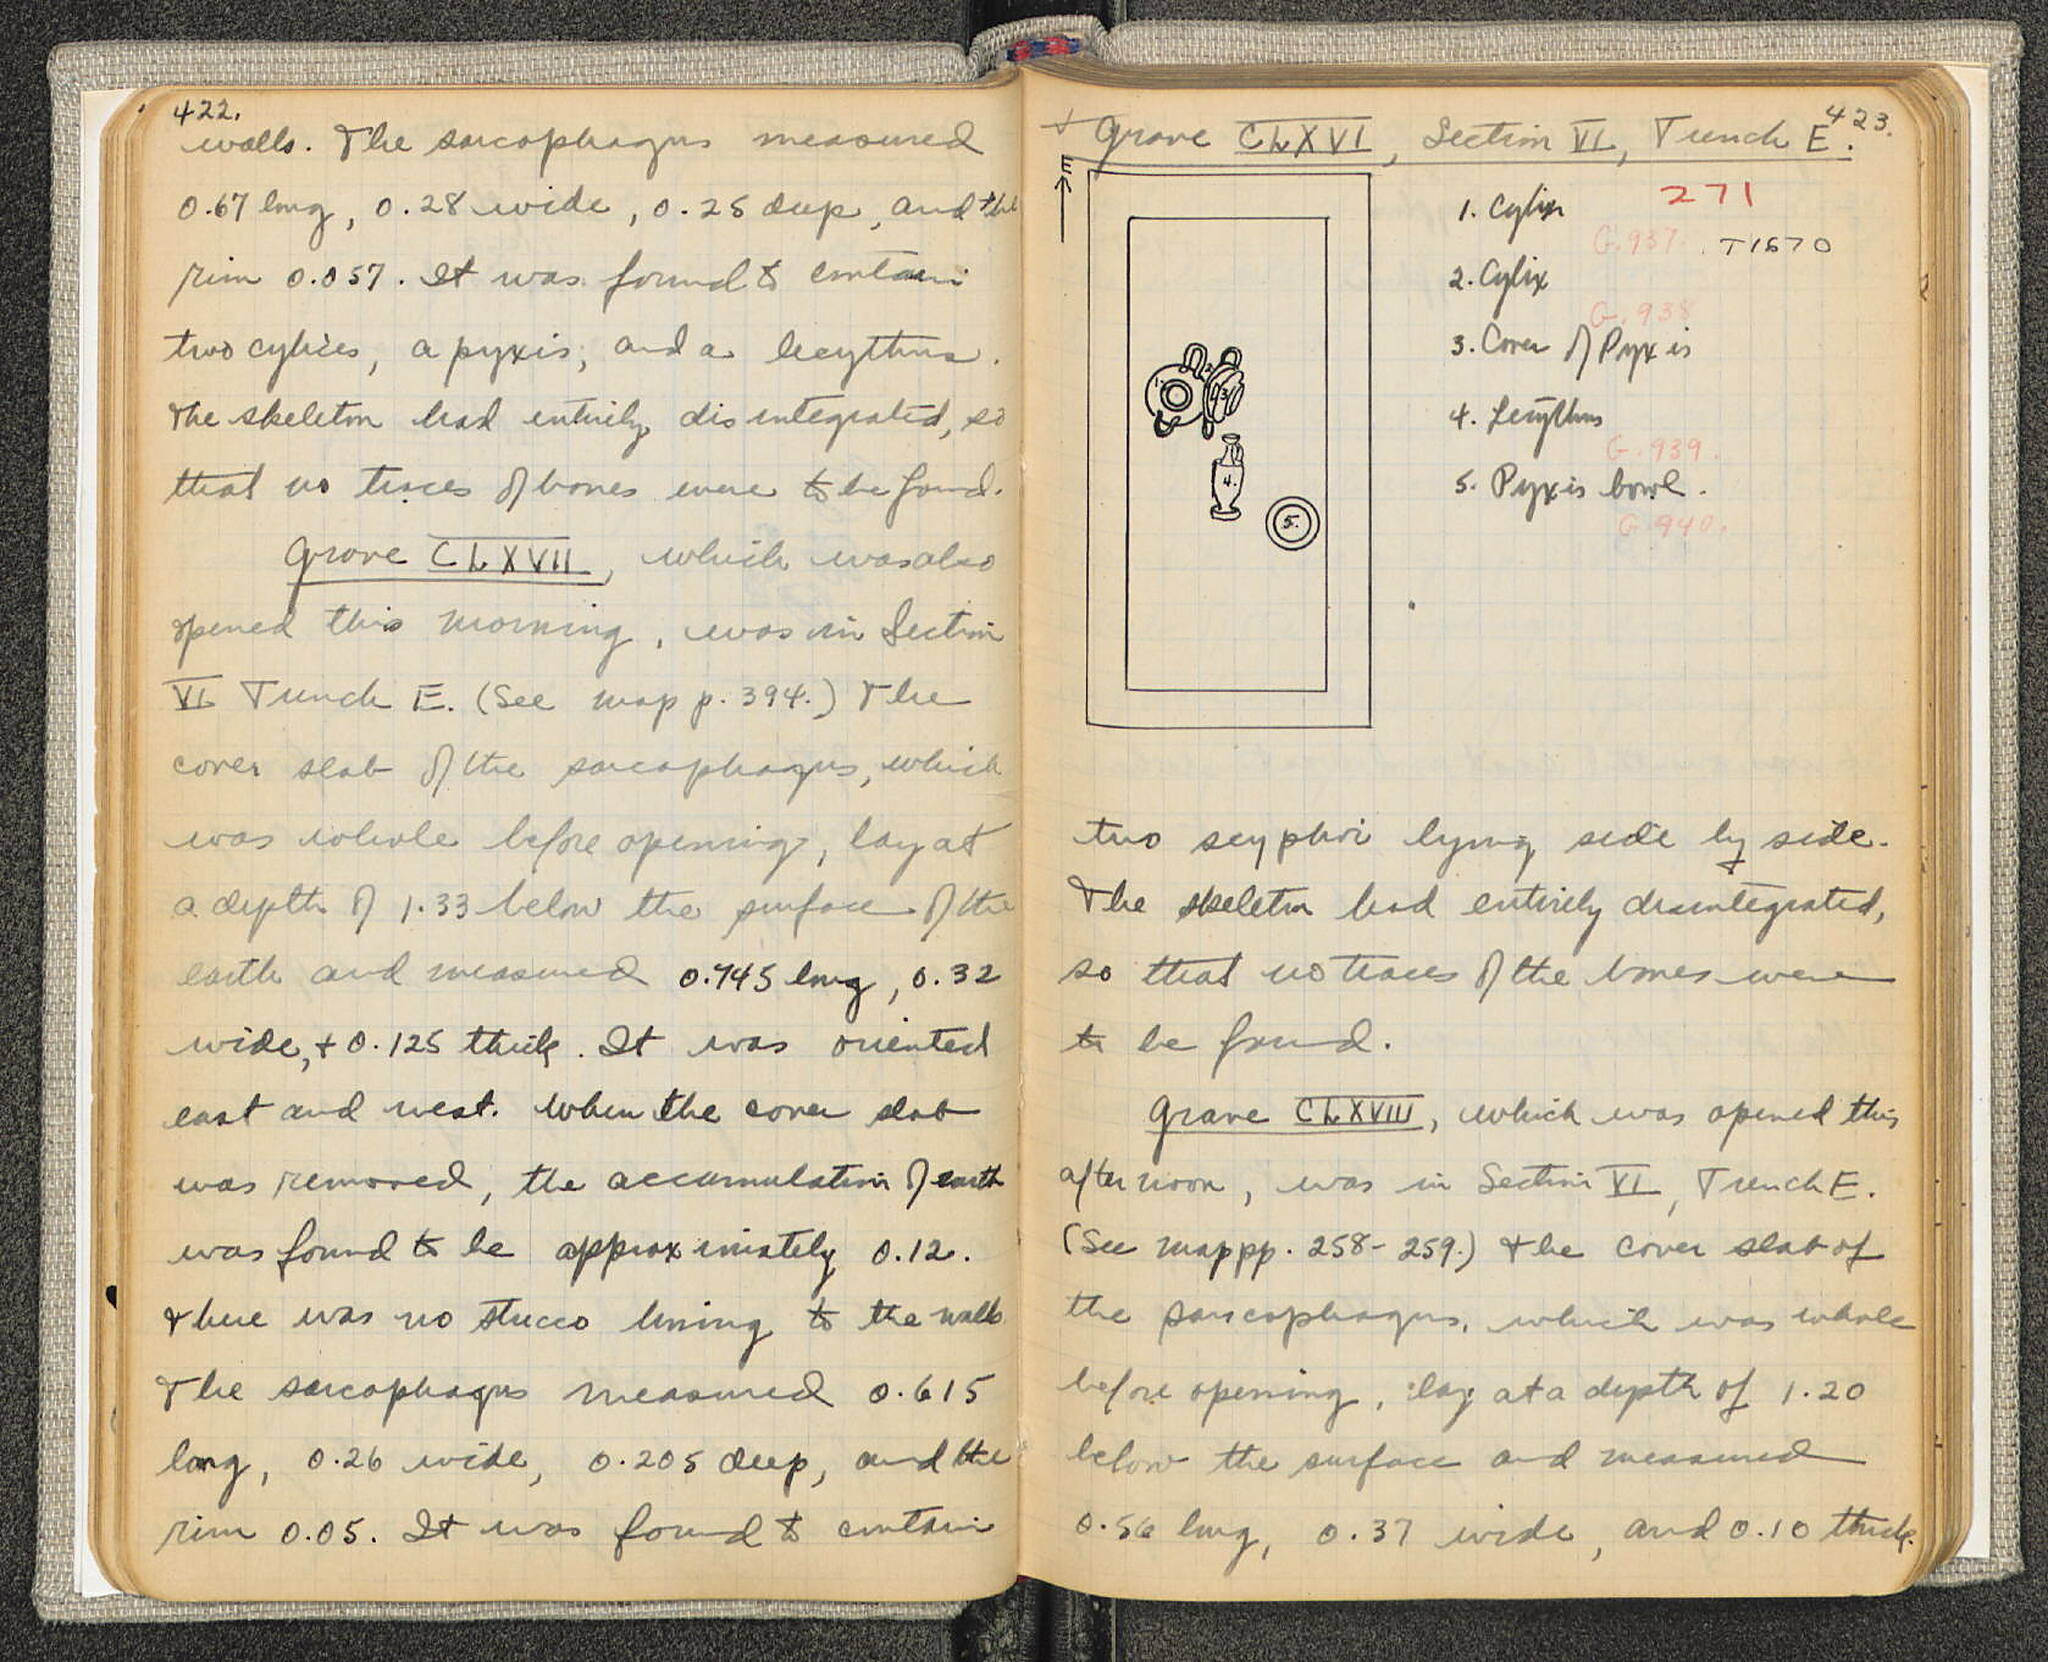 422.
walls. The sarcophagus measured
0.67 long, 0.28 wide, 0.25 deep, and the
rim 0.057. It was found to contain
two cylices, a pyxis, and a lecythus.
The skeleton had entirely disintegrated, so
that no traces of bones were to be found.
Grave CLXVII, which was also
opened this morning, was in Section
VI Trench E. (See map p. 394.) The
cover slab of the sarcophagus, which
was whole before opening, lay at
a depth of 1.33 below the surface of the
earth and measured 0.745 long, 0.32
wide, + 0.125 thick. It was oriented
east and west. When the cover slab
was removed, the accumulation of earth
was found to be approximately 0.12.
There was no stucco lining to the walls.
The sarcophagus measured 0.615
long, 0.26 wide, 0.205 deep, and the
rim 0.05. It was found to contain
423.
Grave CLXVI, Section VI, Trench E.
E
271
1. Cylix
G.937. T1570
2. Cylix
G.938
3. Cover of Pyxis
4. Lecythus
G.939.
5. Pyxis bowl.
G.940.
1.
2
3
4.
5.
two scyphoi lying side by side.
The skeleton had entirely disintegrated,
so that no traces of the bones were
to be found.
Grave CLXVIII, which was opened this
afternoon, was in Section VI, Trench E.
(See map pp. 258-259.) The cover slab of
the sarcophagus, which was whole
before opening, lay at a depth of 1.20
below the surface and measured
0.56 long, 0.37 wide, and 0.10 thick.